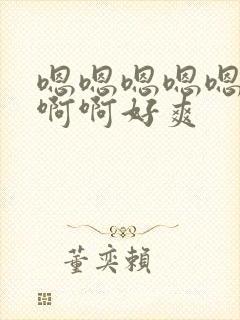 嗯嗯嗯嗯嗯
啊啊好爽
董奕賴